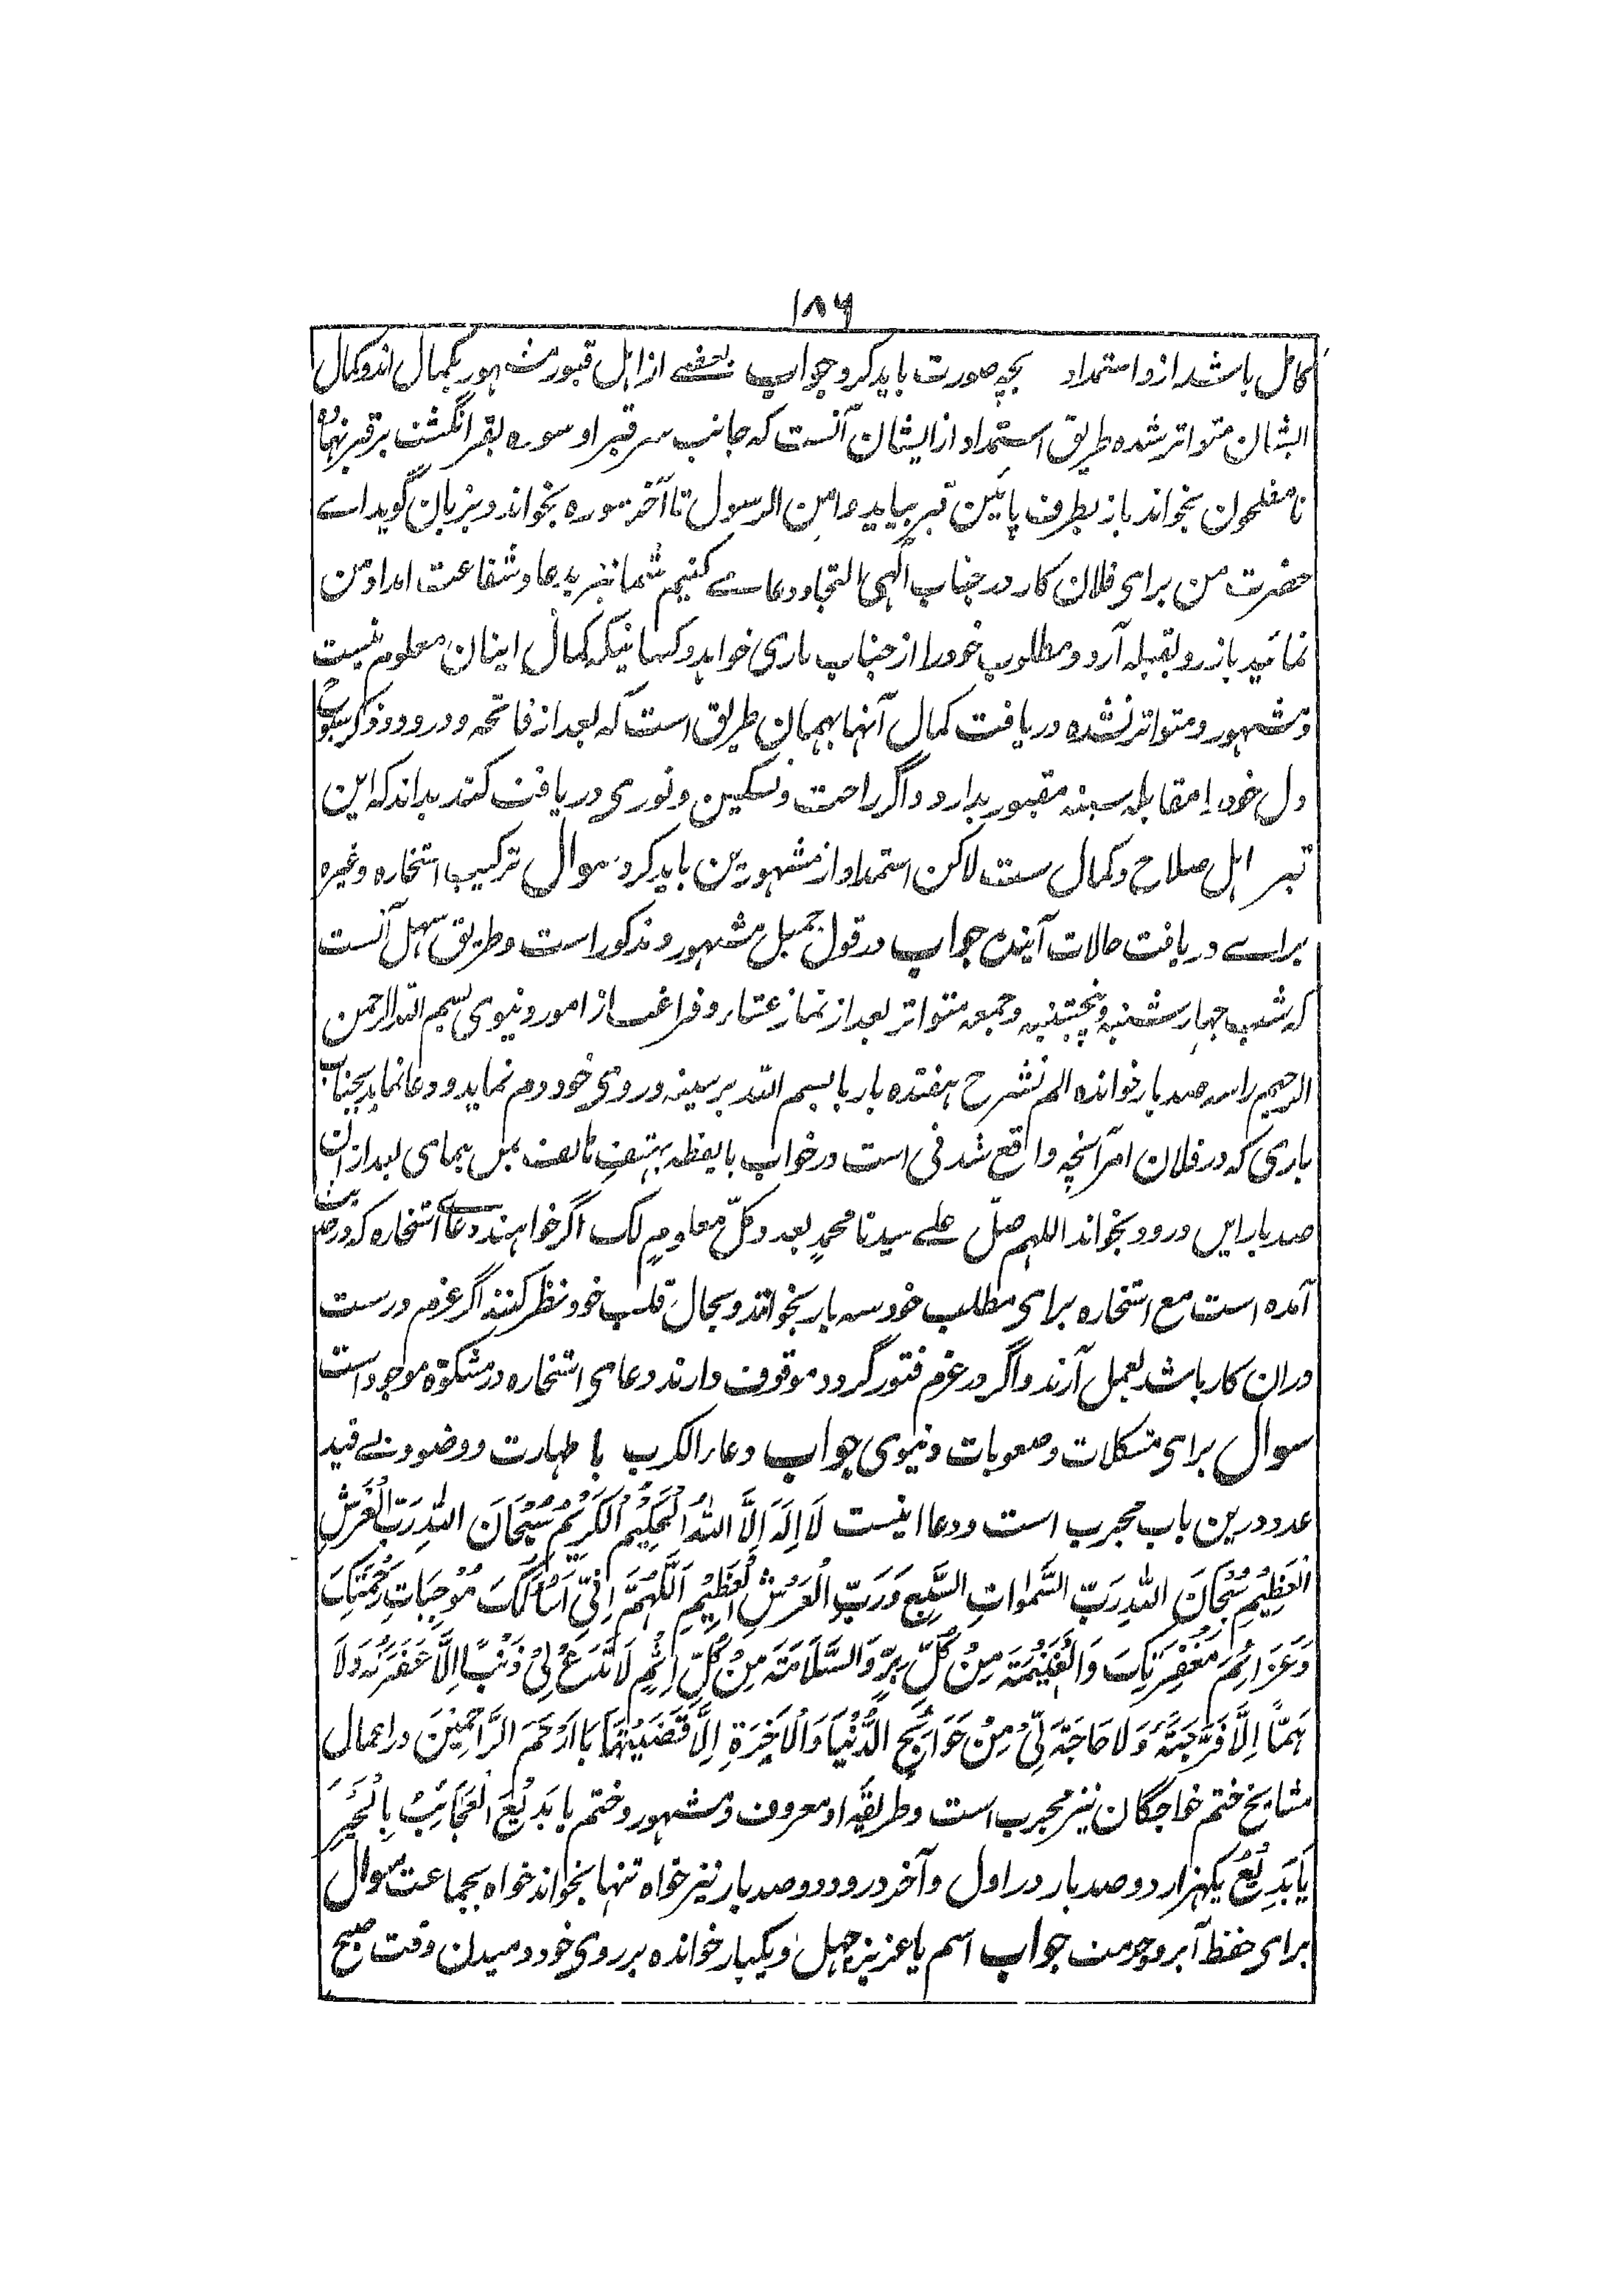 ۱۸۶
کامل باشد ازو استمداد بچه صورت باید کرد جواب بعضے از اہل قبور مشہور بکمال اند و کمال
ایشان متواتر شدہ طریق استمداد از ایشان آنست کہ جانب سر قبر او سورہ بقر انگشت بر قبر نہادہ
تا مفلحون بخواند باز بطرف پائین قبر بیاید و امن الرسول تا آخر سورہ بخواند و بزبان گوید اے
حضرت من برای فلان کار در جناب الٰہی التجا و دعا مے کنیم شما نیز بدعا و شفاعت امداد من
نمائید باز رو بقبلہ آرد و مطلوب خود را از جناب باری خواہد و کسانیکہ کمال اینان معلوم نیست
و مشہور و متواتر نشدہ دریافت کمال آنہا بہمان طریق است کہ بعد از فاتحہ و درود و ذکر سبوح
دل خود را مقابلہ سینہ مقبور بدارد و اگر راحت و تسکین و نوری دریافت کند بداند کہ این
قبر اہل صلاح و کمال ست لاکن استمداد از مشہورین باید کرد سوال ترکیب استخارہ وغیرہ
براے دریافت حالات آیندہ جواب در قول جمیل مشہور و مذکور است و طریق سہل آنست
کہ شب چہار شنبہ و پنجشنبہ و جمعہ متواتر بعد از نماز عشاء و فراغت از امور دنیوی بسم اللہ الرحمن
الرحیم را سہ صد بار خواندہ الم نشرح ہفتدہ بار با بسم اللہ بر سینہ و روی خود دم نماید و دعا نماید بجناب
باری کہ در فلان امر آنچہ واقع شدنی است در خواب یا یقظہ بہتف ہاتف بمن بنمای بعد ازان
صد بار این درود بخواند اللہم صل علے سیدنا محمد بعدد کل معلوم لک اگر خواہند دعاے استخارہ کہ در حدیث
آمدہ است مع استخارہ برای مطلب خود سہ بار بخوانند و بحال قلب خود نظر کنند اگر عزم درست
دران کار باشد بعمل آرند و اگر در عزم فتور گردد موقوف دارند و دعای استخارہ در مشکوٰة موجود است
سوال برای مشکلات و صعوبات دنیوی جواب دعاء الکرب با طہارت و وضو و بے قید
عدد درین باب مجرب است و دعا اینست لَا اِلٰهَ اِلَّا اللهُ الْحَكِيْمُ الْكَرِيْمُ سُبْحَانَ اللهِ رَبِّ الْعَرْشِ
الْعَظِيْمِ سُبْحَانَ اللهِ رَبِّ السَّمٰوَاتِ السَّبْعِ وَرَبِّ الْعَرْشِ الْعَظِيْمِ اَللّٰهُمَّ اِنِّيْ اَسْاَلُكَ مُوْجِبَاتِ رَحْمَتِكَ
وَعَزَائِمَ مَغْفِرَتِكَ وَالْغَنِيْمَةَ مِنْ كُلِّ بِرٍّ وَالسَّلَامَةَ مِنْ كُلِّ اِثْمٍ لَا تَدَعْ لِيْ ذَنْبًا اِلَّا غَفَرْتَهٗ وَلَا
هَمًّا اِلَّا فَرَّجْتَهٗ وَلَا حَاجَةً لِّيْ مِنْ حَوَائِجِ الدُّنْيَا وَالْاٰخِرَةِ اِلَّا قَضَيْتَهَا يَا اَرْحَمَ الرَّاحِمِيْنَ در اعمال
مشایخ ختم خواجگان نیز مجرب است و طریقہ او معروف و مشہور و ختم یا بَدِيْعَ الْعَجَائِبْ بِالْخَيْرِ
يَا بَدِيْعُ یکہزار دو صد بار در اول و آخر درود دو صد بار نیز خواہ تنہا بخواند خواہ بجماعت سوال
برای حفظ آبرو و حرمت جواب اسم یا عزیز چہل و یکبار خواندہ بر روی خود دمیدن وقت صبح